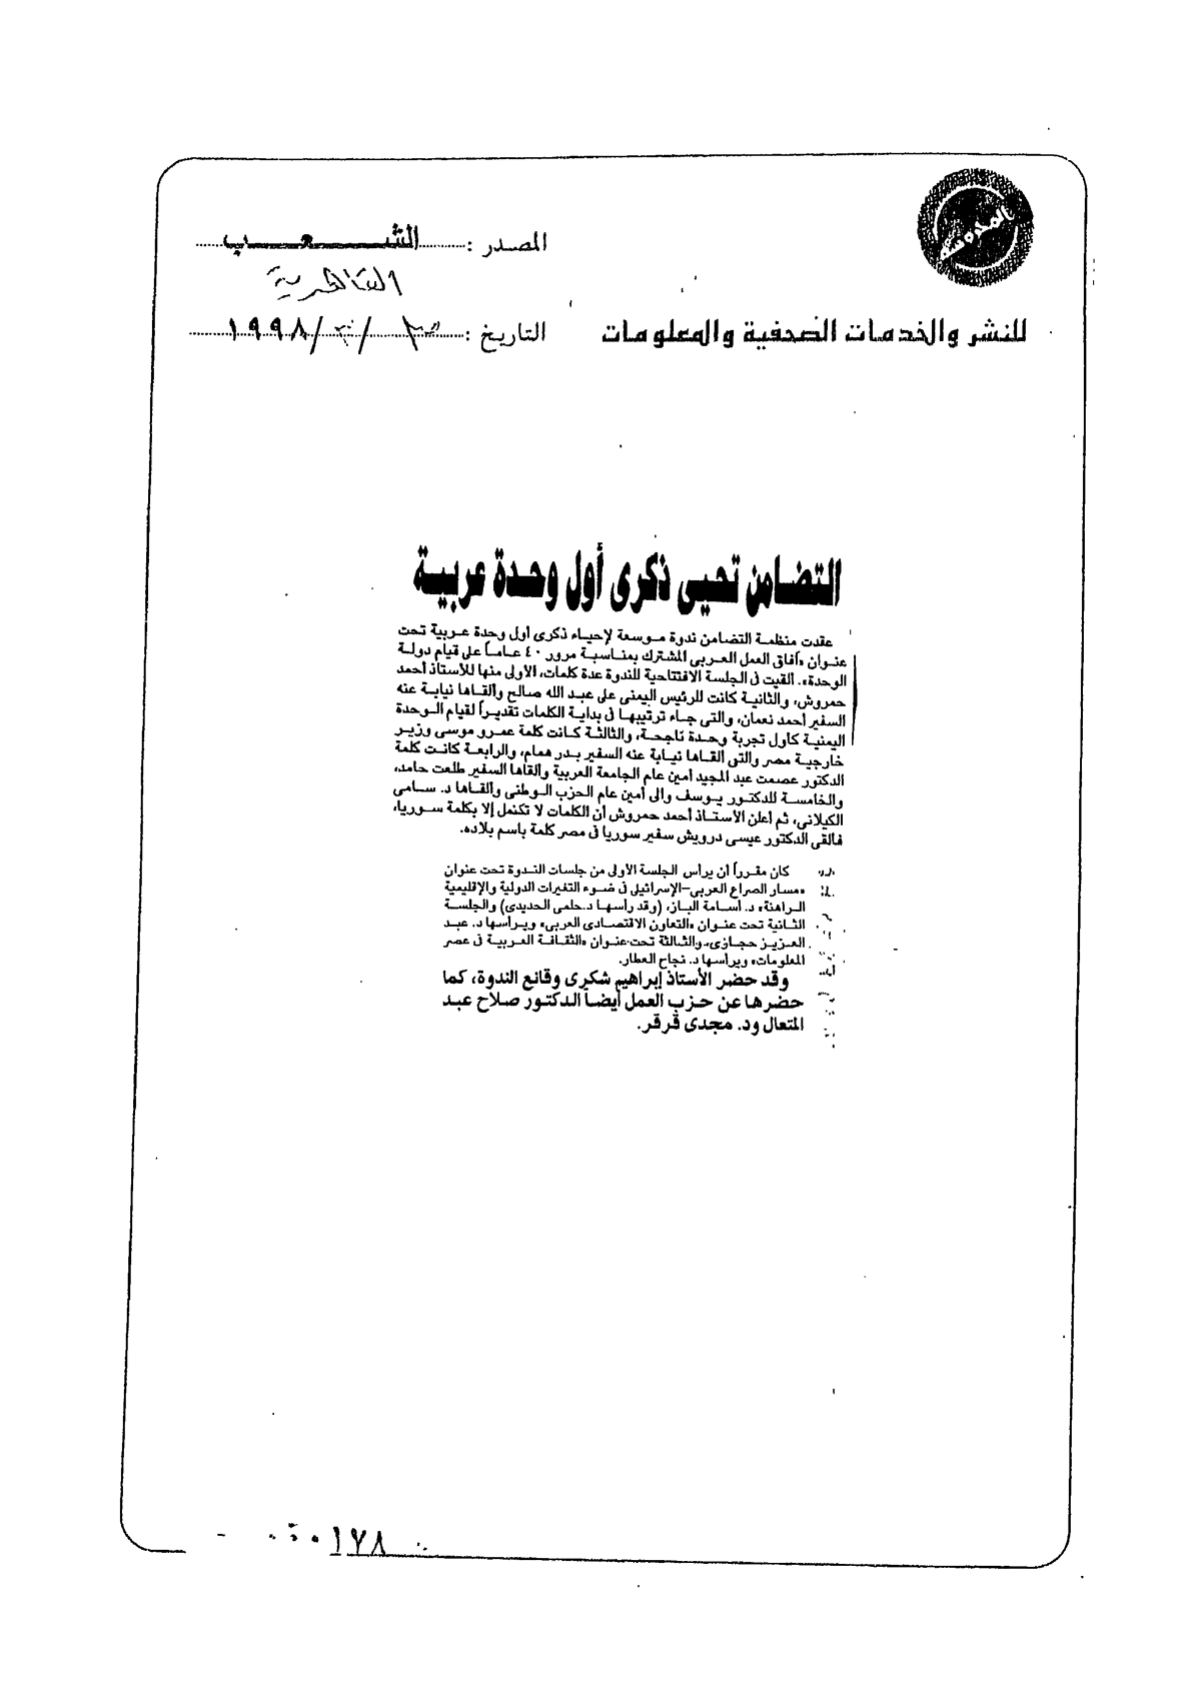 المصدر : الشعب
القاهرية
للنشر والخدمات الصحفية والمعلومات
التاريخ : / / ١٩٩٨
التضامن تحيى ذكرى أول وحدة عربية
عقدت منظمة التضامن ندوة موسعة لإحياء ذكرى أول وحدة عربية تحت
عنوان «آفاق العمل العربى المشترك بمناسبة مرور ٤٠ عاماً على قيام دولة
الوحدة». ألقيت فى الجلسة الافتتاحية للندوة عدة كلمات، الأولى منها للأستاذ أحمد
حمروش، والثانية كانت للرئيس اليمنى على عبد الله صالح وألقاها نيابة عنه
السفير أحمد نعمان، والتى جاء ترتيبها فى بداية الكلمات تقديراً لقيام الوحدة
اليمنية كأول تجربة وحدة ناجحة، والثالثة كانت كلمة عمرو موسى وزير
خارجية مصر والتى ألقاها نيابة عنه السفير بدر همام، والرابعة كانت كلمة
الدكتور عصمت عبد المجيد أمين عام الجامعة العربية وألقاها السفير طلعت حامد،
والخامسة للدكتور يوسف والى أمين عام الحزب الوطنى وألقاها د. سامى
الكيلانى، ثم أعلن الأستاذ أحمد حمروش أن الكلمات لا تكتمل إلا بكلمة سوريا،
فألقى الدكتور عيسى درويش سفير سوريا فى مصر كلمة باسم بلاده.
كان مقرراً أن يرأس الجلسة الأولى من جلسات الندوة تحت عنوان
«مسار الصراع العربى-الإسرائيلى فى ضوء التغيرات الدولية والإقليمية
الراهنة» د. أسامة الباز، (وقد رأسها د.حلمى الحديدى) والجلسة
الثانية تحت عنوان «التعاون الاقتصادى العربى» ويرأسها د. عبد
العزيز حجازى، والثالثة تحت عنوان «الثقافة العربية فى عصر
المعلومات» ويرأسها د. نجاح العطار.
وقد حضر الأستاذ إبراهيم شكرى وقائع الندوة، كما
حضرها عن حزب العمل أيضاً الدكتور صلاح عبد
المتعال ود. مجدى قرقر.
٠١٧٨